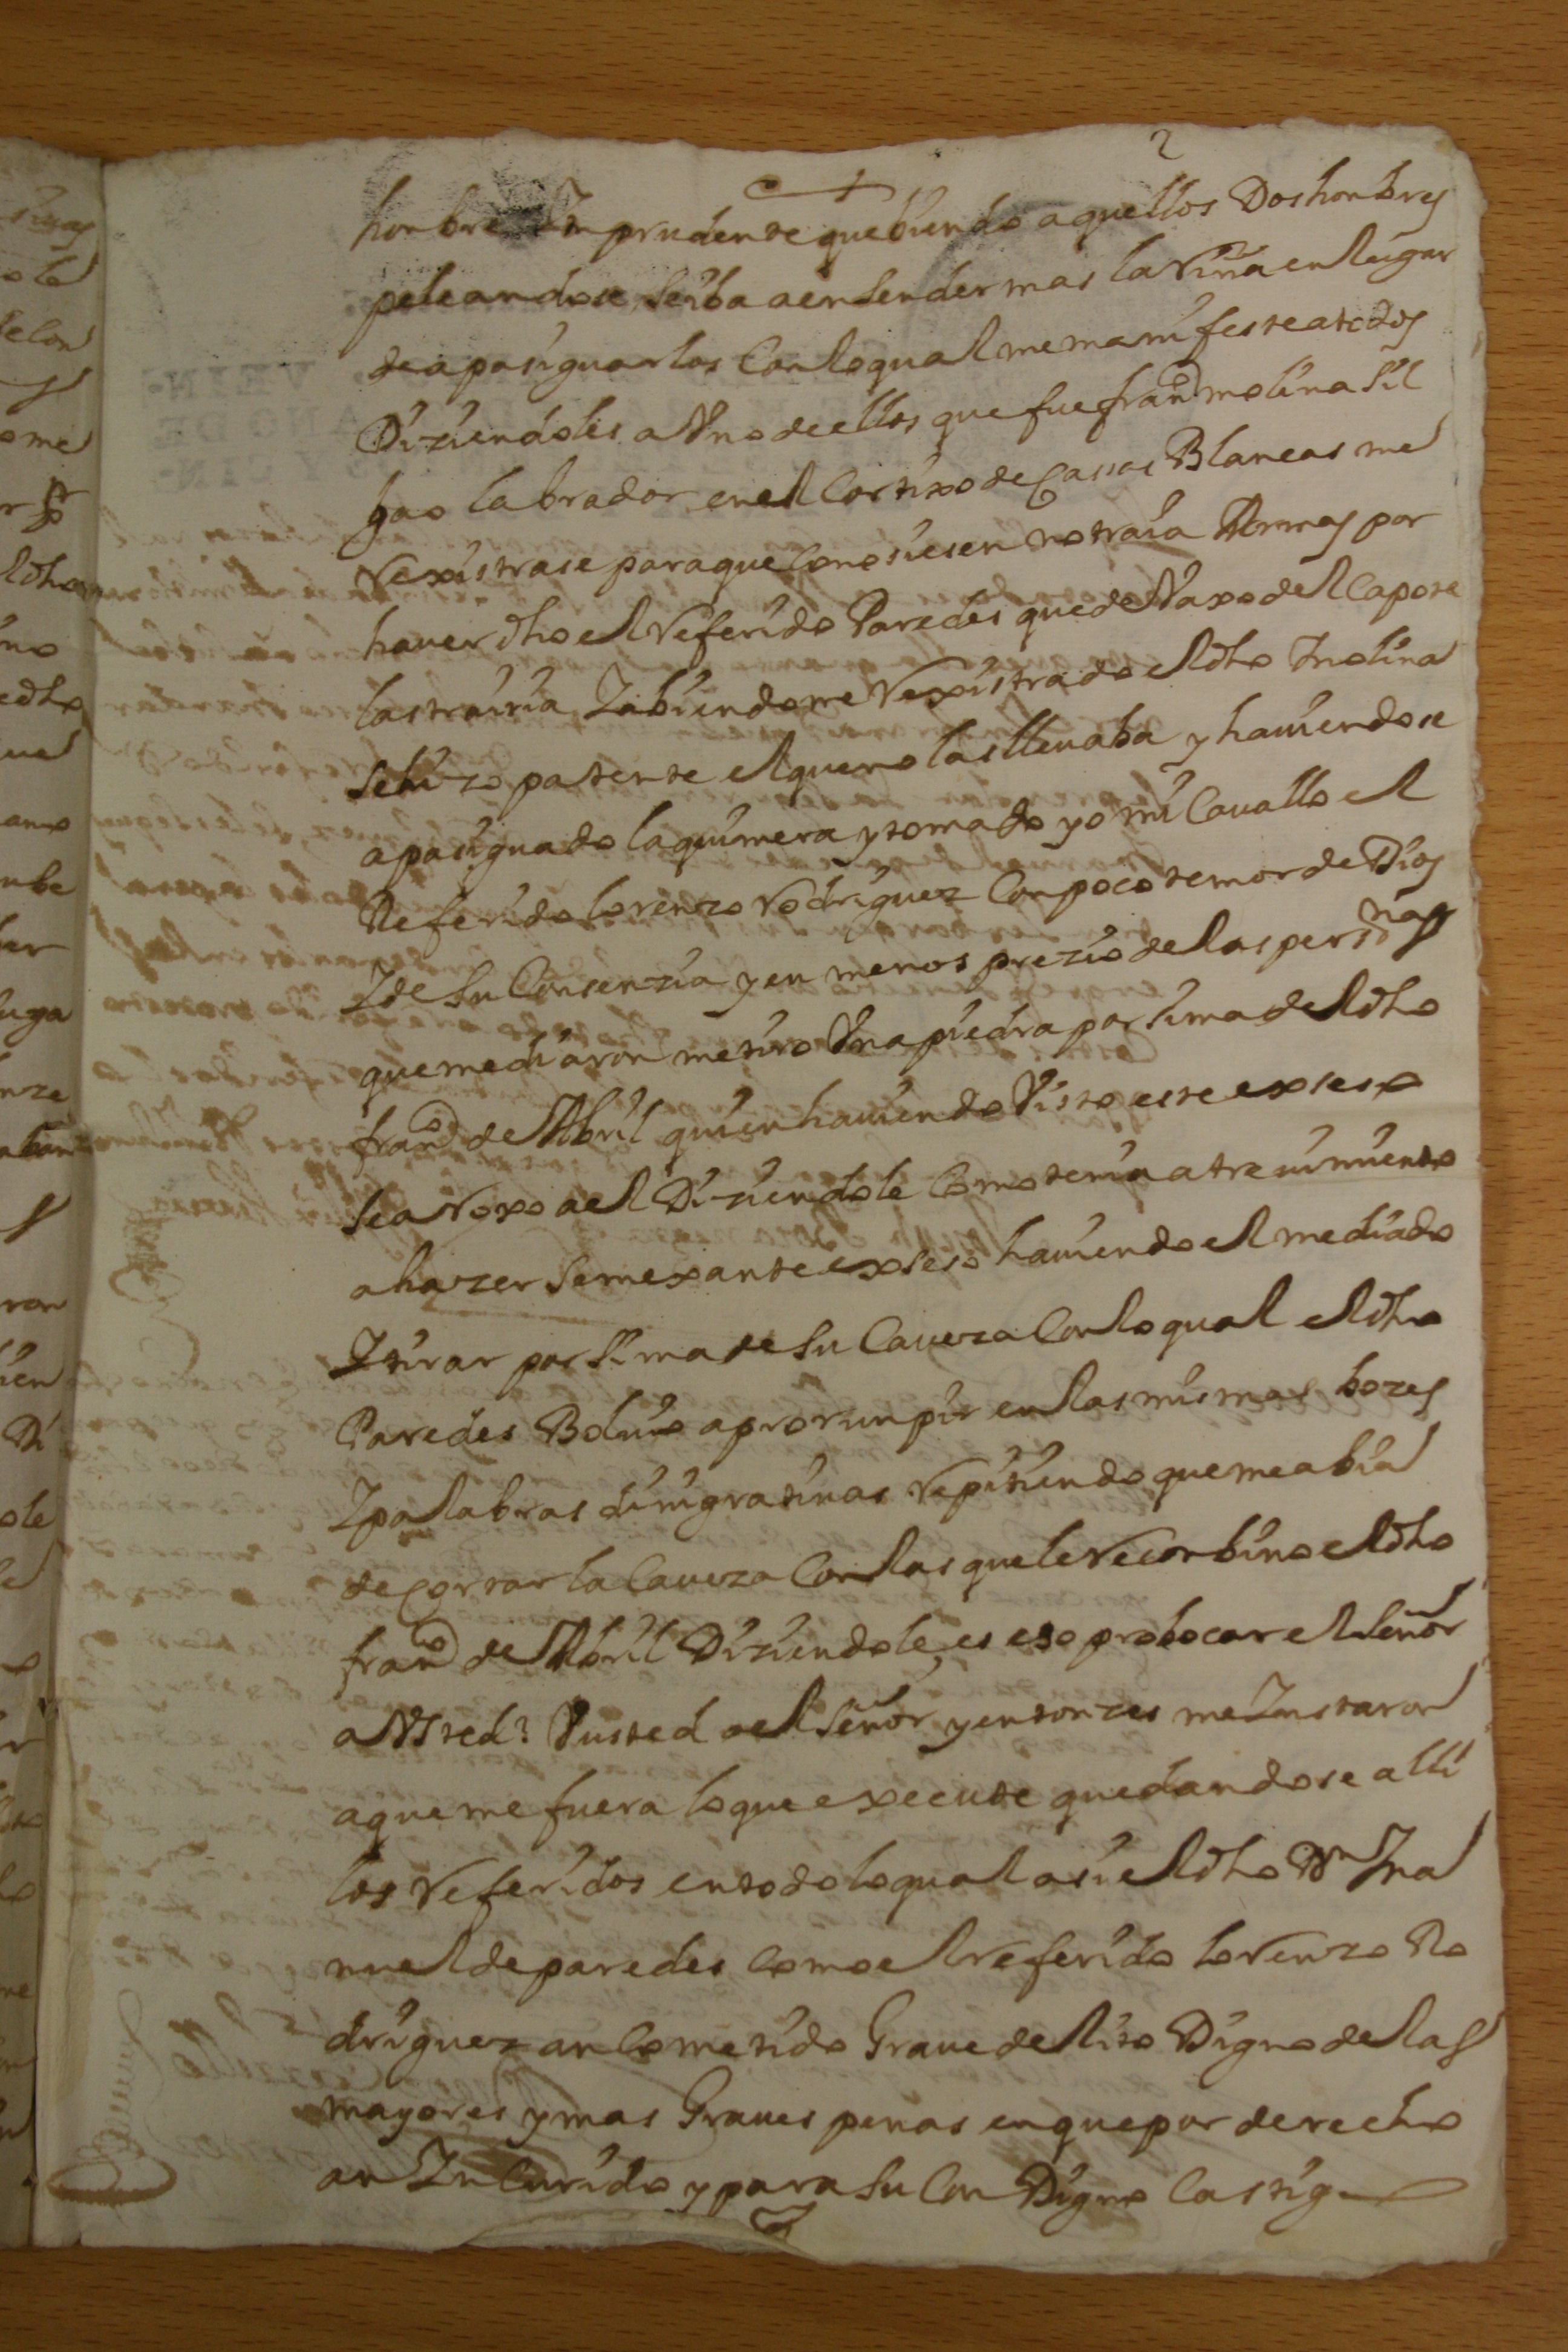 2
honbre Ynprudente que biendo aquellos Dos honbres
peleandose, se iba a ensender mas la Riña en lugar
de apasiguarlos Con lo qual me manifeste a todos
Diziendoles a Vno de ellos que fue franco molina sil
bao labrador en el Cortixo de Casas Blancas me
Rexistrase para que Conosiesen no traia Armas por
hauer dho el Referido Paredes que devaxo del Capote
las trairia Y abiendome Rexistrado el dho Molina
se hizo patente el que no las lleuaba y hauiendose
apasiguado la quimera y tomado yo mi Cauallo el
Referido lorenzo Rodriguez Con poco temor de Dios
Y de su Consenzia y en menos prezio de las personas
que mediaron me tiro Vna piedra por sima del dho
franco de Abril quien hauiendo Visto este exseso
se aRoxo a el Diziendole Como tenia atreuimiento
a hazer semexante exseso hauiendo el mediado
Y tirar por sima de su Caueza Con lo qual el dho
Paredes Boluio a prorunpir en las mismas bozes
Y palabras dinigratiuas Repitiendo que me abia
de Cortar la Caueza Con las que le Reconbino el dho
franco de Abril Diziendole, es eso probocar el señor
a Vsted? V usted a el señor, y entonzes me Ynstaron
a que me fuera lo que execute quedandose alli
los Referidos en todo lo qual asi el dho Dn Ma
nuel de paredes Como el referido loRenzo Ro
driguez an Cometido Graue delito Digno de las
mayores y mas Graues penas en que por derecho
an Yncurido y para su Con Digno Castigo